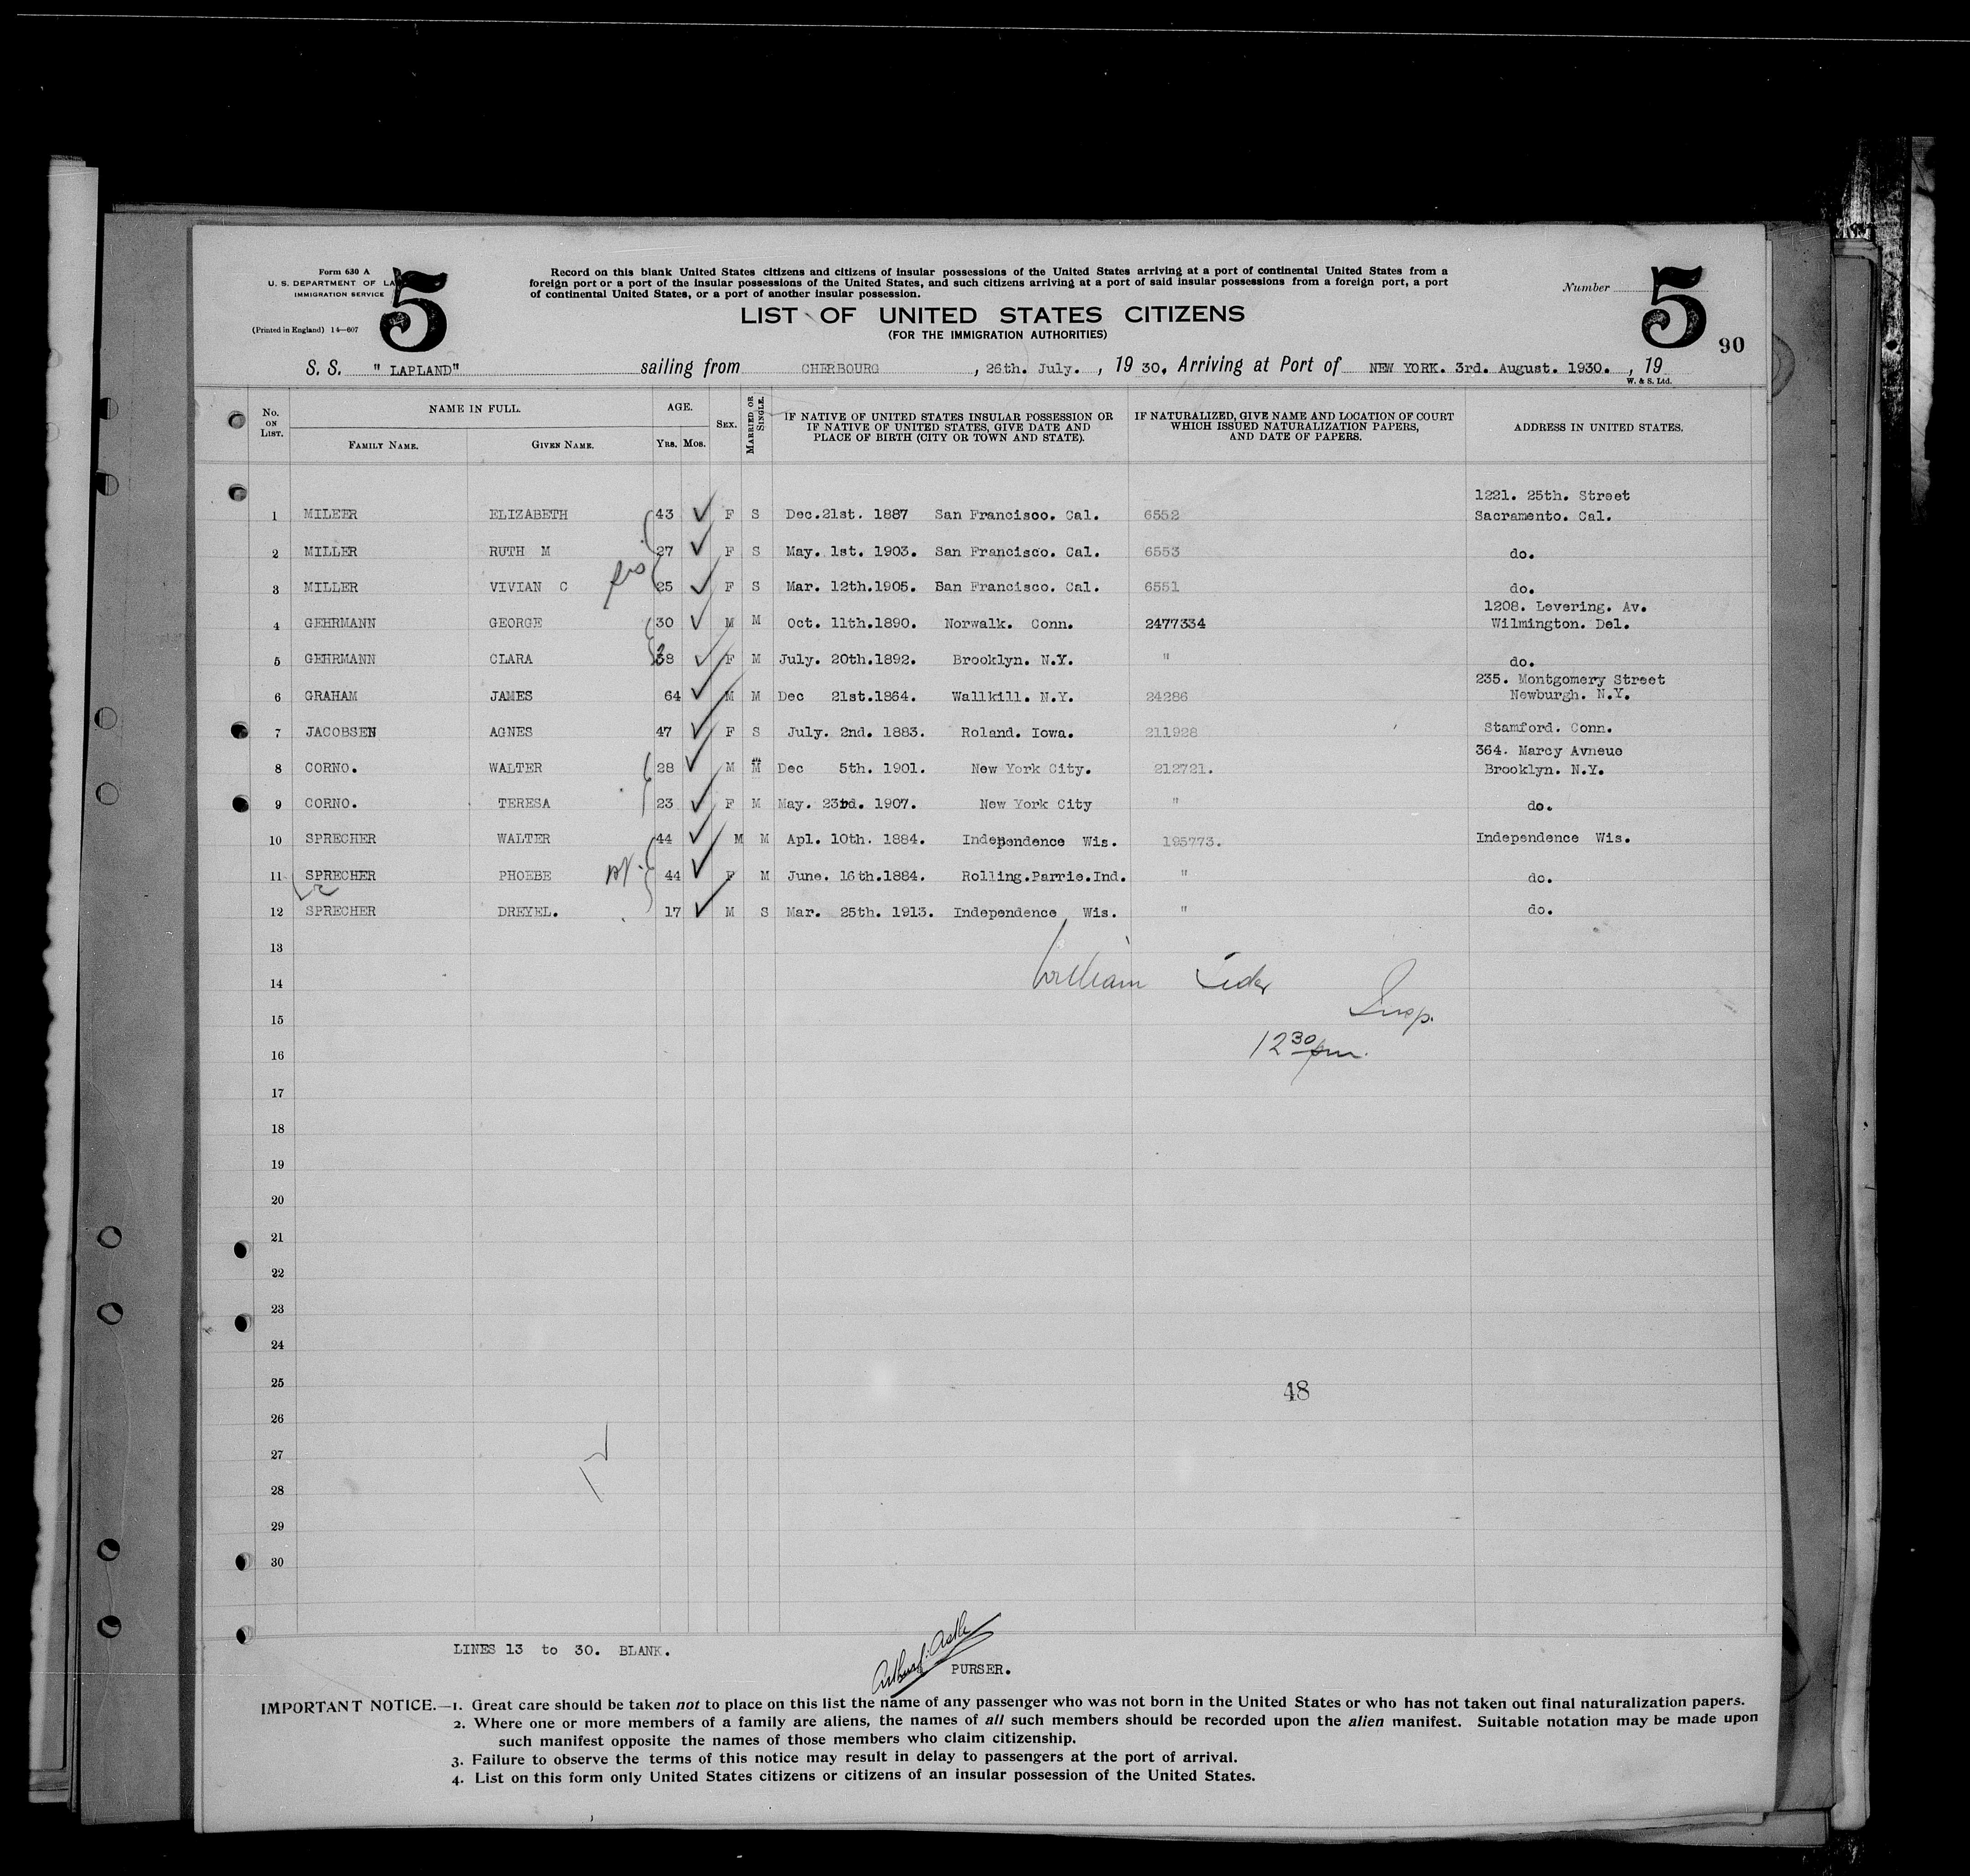 Form 630 A
U. S. DEPARTMENT OF LA
IMMIGRATION SERVICE
(Printed in England) 14—607
5
Record on this blank United States citizens and citizens of insular possessions of the United States arriving at a port of continental United States from a
foreign port or a port of the insular possessions of the United States, and such citizens arriving at a port of said insular possessions from a foreign port, a port
of continental United States, or a port of another insular possession.
LIST OF UNITED STATES CITIZENS
(FOR THE IMMIGRATION AUTHORITIES)
Number
5
90
S. S. " LAPLAND" sailing from CHERBOURG , 26th. July. , 19 30. Arriving at Port of NEW YORK. 3rd. August. 1930. , 19
W. & S. Ltd.
No. ON LIST. NAME IN FULL. AGE. SEX. MARRIED OR SINGLE. IF NATIVE OF UNITED STATES INSULAR POSSESSION OR IF NATIVE OF UNITED STATES, GIVE DATE AND PLACE OF BIRTH (CITY OR TOWN AND STATE). IF NATURALIZED, GIVE NAME AND LOCATION OF COURT WHICH ISSUED NATURALIZATION PAPERS, AND DATE OF PAPERS. ADDRESS IN UNITED STATES.
FAMILY NAME. GIVEN NAME. YRS. MOS.
1221. 25th. Street
1 MILEER ELIZABETH 43 F S Dec.21st. 1887 San Francisco. Cal. 6552 Sacramento. Cal.
2 MILLER RUTH M 27 F S May. 1st. 1903. San Francisco. Cal. 6553 do.
3 MILLER VIVIAN C 25 F S Mar. 12th.1905. San Francisco. Cal. 6551 do.
1208. Levering. Av.
4 GEHRMANN GEORGE 30 M M Oct. 11th.1890. Norwalk. Conn. 2477334 Wilmington. Del.
5 GEHRMANN CLARA 38 F M July. 20th.1892. Brooklyn. N.Y. " do.
235. Montgomery Street
6 GRAHAM JAMES 64 M M Dec 21st.1864. Wallkill. N.Y. 24286 Newburgh. N.Y.
7 JACOBSEN AGNES 47 F S July. 2nd. 1883. Roland. Iowa. 211928 Stamford. Conn.
364. Marcy Avneue
8 CORNO. WALTER 28 M M Dec 5th. 1901. New York City. 212721. Brooklyn. N.Y.
9 CORNO. TERESA 23 F M May. 23rd. 1907. New York City " do.
10 SPRECHER WALTER 44 M M Apl. 10th. 1884. Independence Wis. 195773. Independence Wis.
11 SPRECHER PHOEBE 44 F M June. 16th.1884. Rolling.Parrie.Ind. " do.
12 SPRECHER DREYEL. 17 M S Mar. 25th. 1913. Independence Wis. " do.
13
14 William
15 Insp.
16 12 30 pm.
17
18
19
20
21
22
23
24
25 48
26
27
28
29
30
LINES 13 to 30. BLANK.
PURSER.
IMPORTANT NOTICE.—1. Great care should be taken not to place on this list the name of any passenger who was not born in the United States or who has not taken out final naturalization papers.
2. Where one or more members of a family are aliens, the names of all such members should be recorded upon the alien manifest. Suitable notation may be made upon
such manifest opposite the names of those members who claim citizenship.
3. Failure to observe the terms of this notice may result in delay to passengers at the port of arrival.
4. List on this form only United States citizens or citizens of an insular possession of the United States.